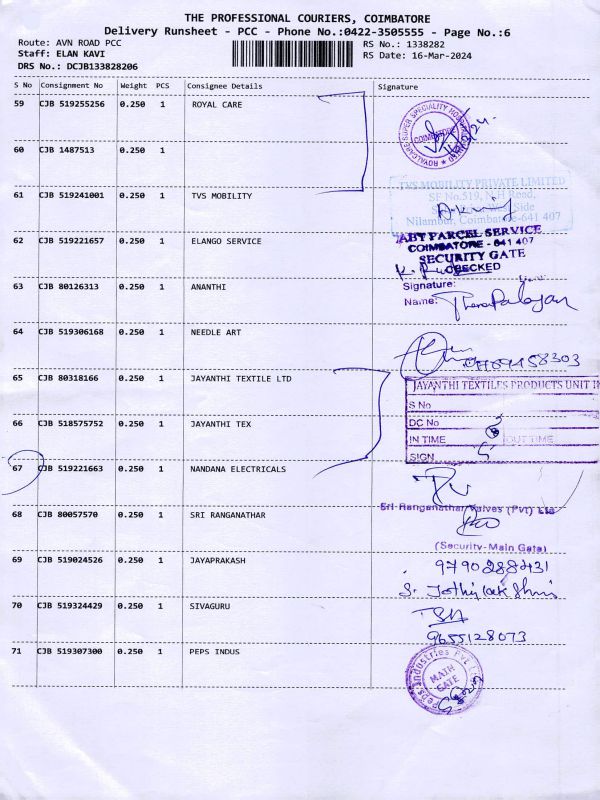 THE PROFESSIONAL COURIERS, COIMBATORE
Delivery Runsheet - PCC - Phone No.:0422-3505555 - Page No.:6
Route: AVN ROAD PCC
RS No.: 1338282
Staff: ELAN KAVI
RS Date: 16-Mar-2024
DRS No.: DCJB133828206
S No Consignment No Weight PCS Consignee Details Signature
59 CJB 519255256 0.250 1 ROYAL CARE
COIMBATORE
60 CJB 1487513 0.250 1
61 CJB 519241001 0.250 1 TVS MOBILITY
TVS MOBILITY PRIVATE LIMITED
SF No.519, N.H Road,
Side
Nilambur, Coimbatore-641 407
62 CJB 519221657 0.250 1 ELANGO SERVICE
ABT PARCEL SERVICE
COIMBATORE - 641 407
SECURITY GATE
CHECKED
63 CJB 80126313 0.250 1 ANANTHI
Signature:
Name:
64 CJB 519306168 0.250 1 NEEDLE ART
65 CJB 80318166 0.250 1 JAYANTHI TEXTILE LTD
JAYANTHI TEXTILES PRODUCTS UNIT
S No
DC No
IN TIME OUT TIME
SIGN
66 CJB 518575752 0.250 1 JAYANTHI TEX
67 CJB 519221663 0.250 1 NANDANA ELECTRICALS
68 CJB 80057570 0.250 1 SRI RANGANATHAR
Sri Ranganathar Valves (Pvt) Ltd
(Security-Main Gate)
69 CJB 519024526 0.250 1 JAYAPRAKASH
9790288431
70 CJB 519324429 0.250 1 SIVAGURU
9655128073
71 CJB 519307300 0.250 1 PEPS INDUS
Peps Industries Pvt Ltd
MAIN
GATE